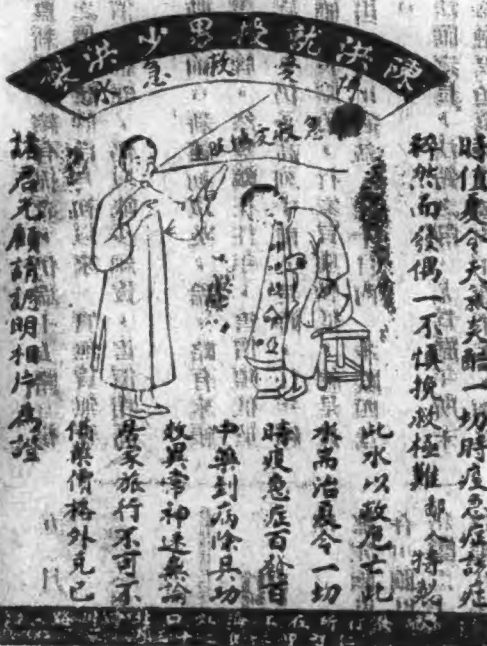 陳洪就授男少洪製
博愛救急水
時值夏令天氣炎酷一切時疫急症諸疴
猝然而發偶一不慎挽救極難鄙人特製
此水以救危此
水為治夏令一切
時疫急症百發百
中藥到病除其功
效異常神速無論
居家旅行不可不
備藥價格外克己
諸君光顧請認明相片為證
行所在上海虹口